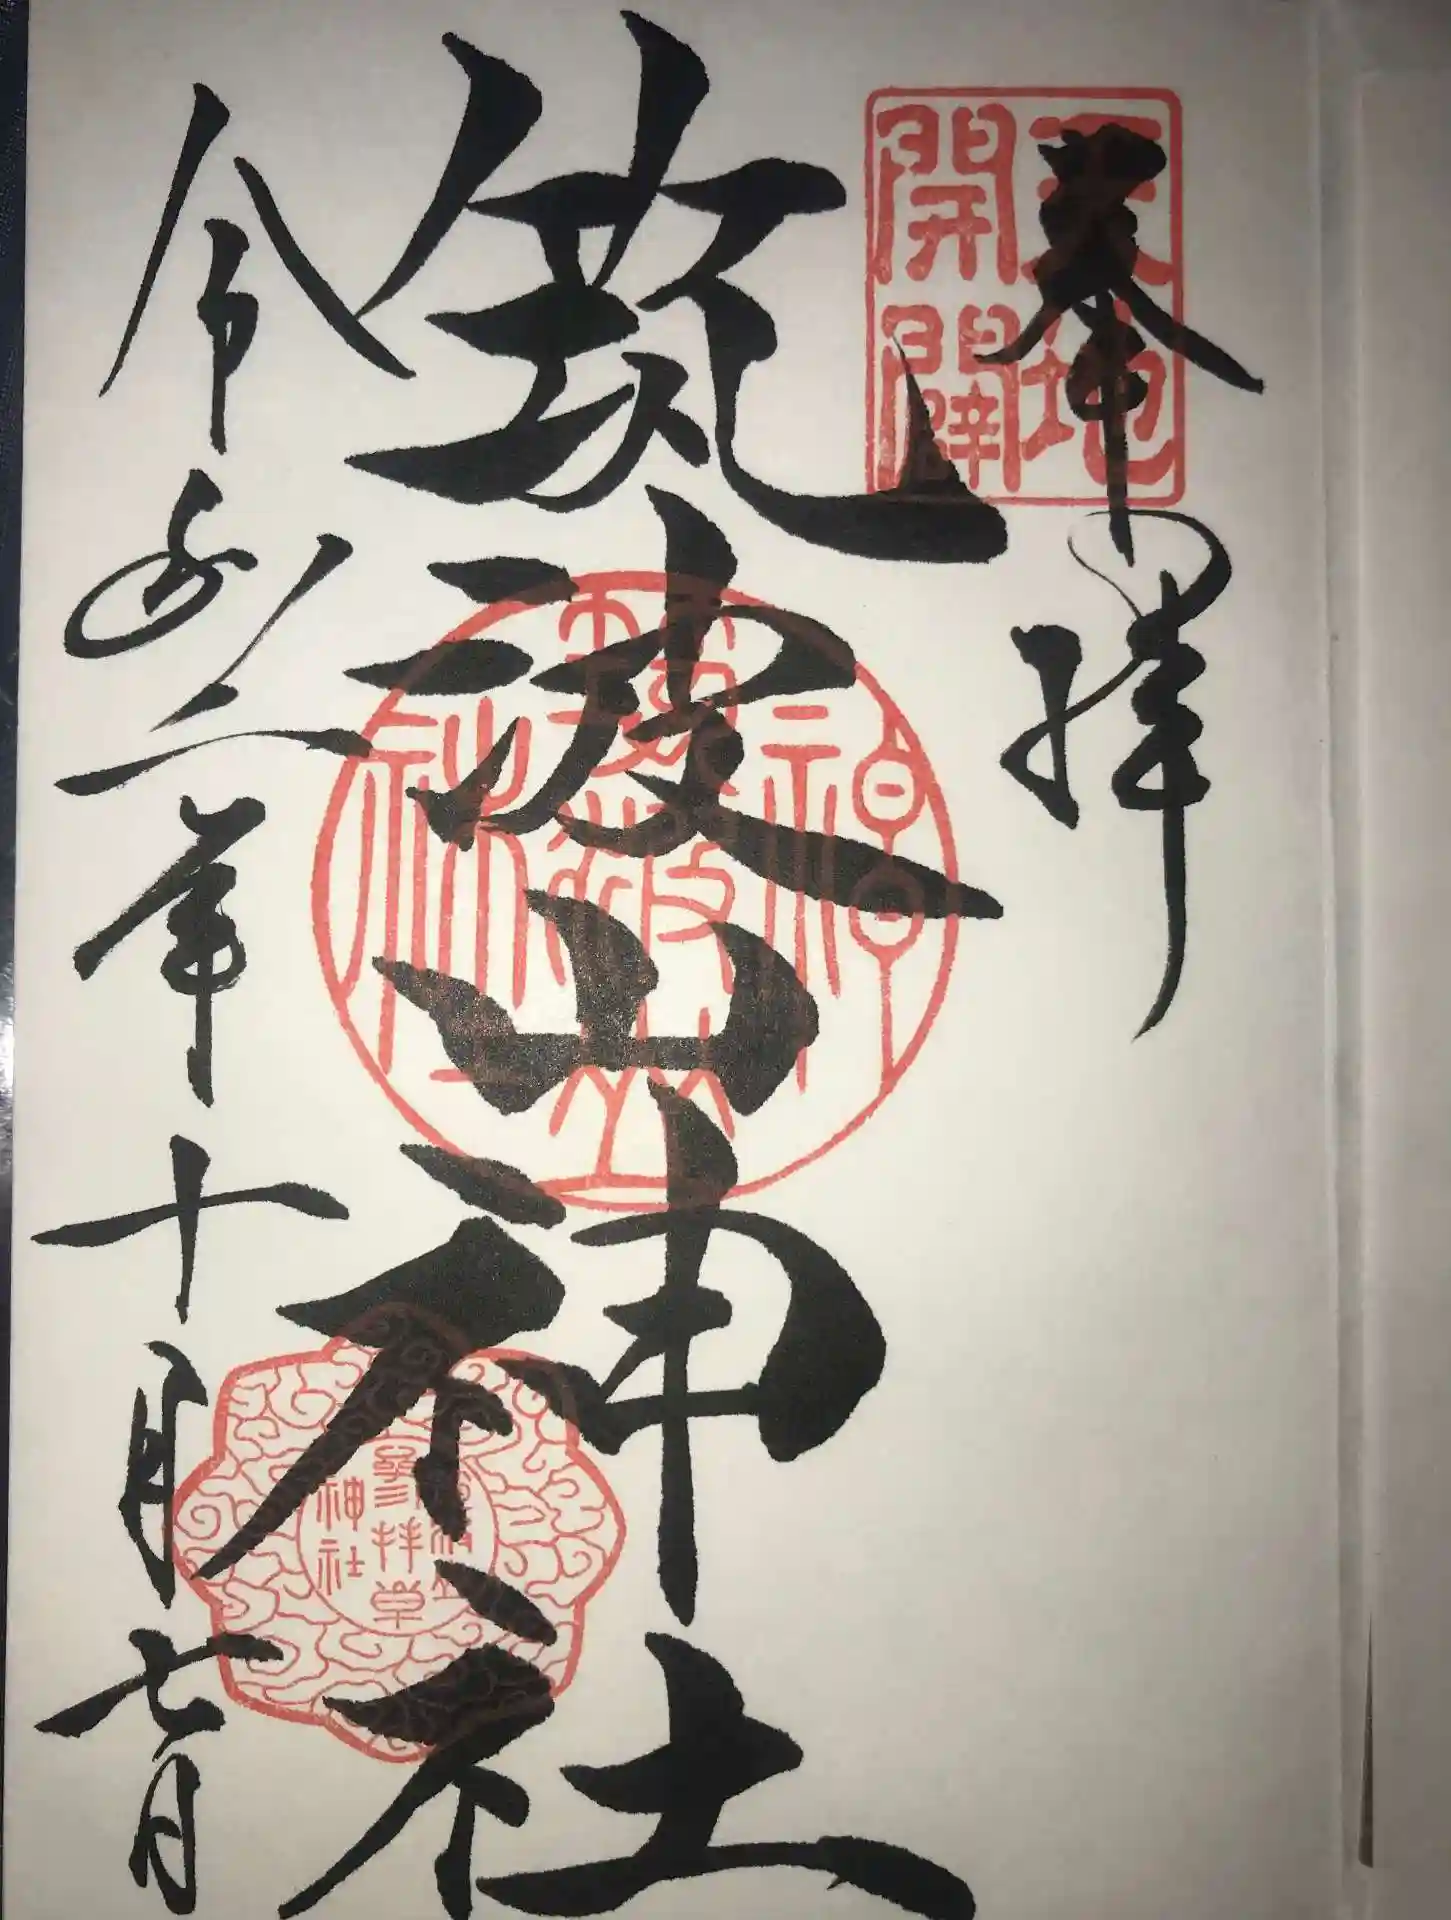 奉拝
天地
開闢
筑波山神社
筑波山
神社
参拝章
神社
令和二年十月七日